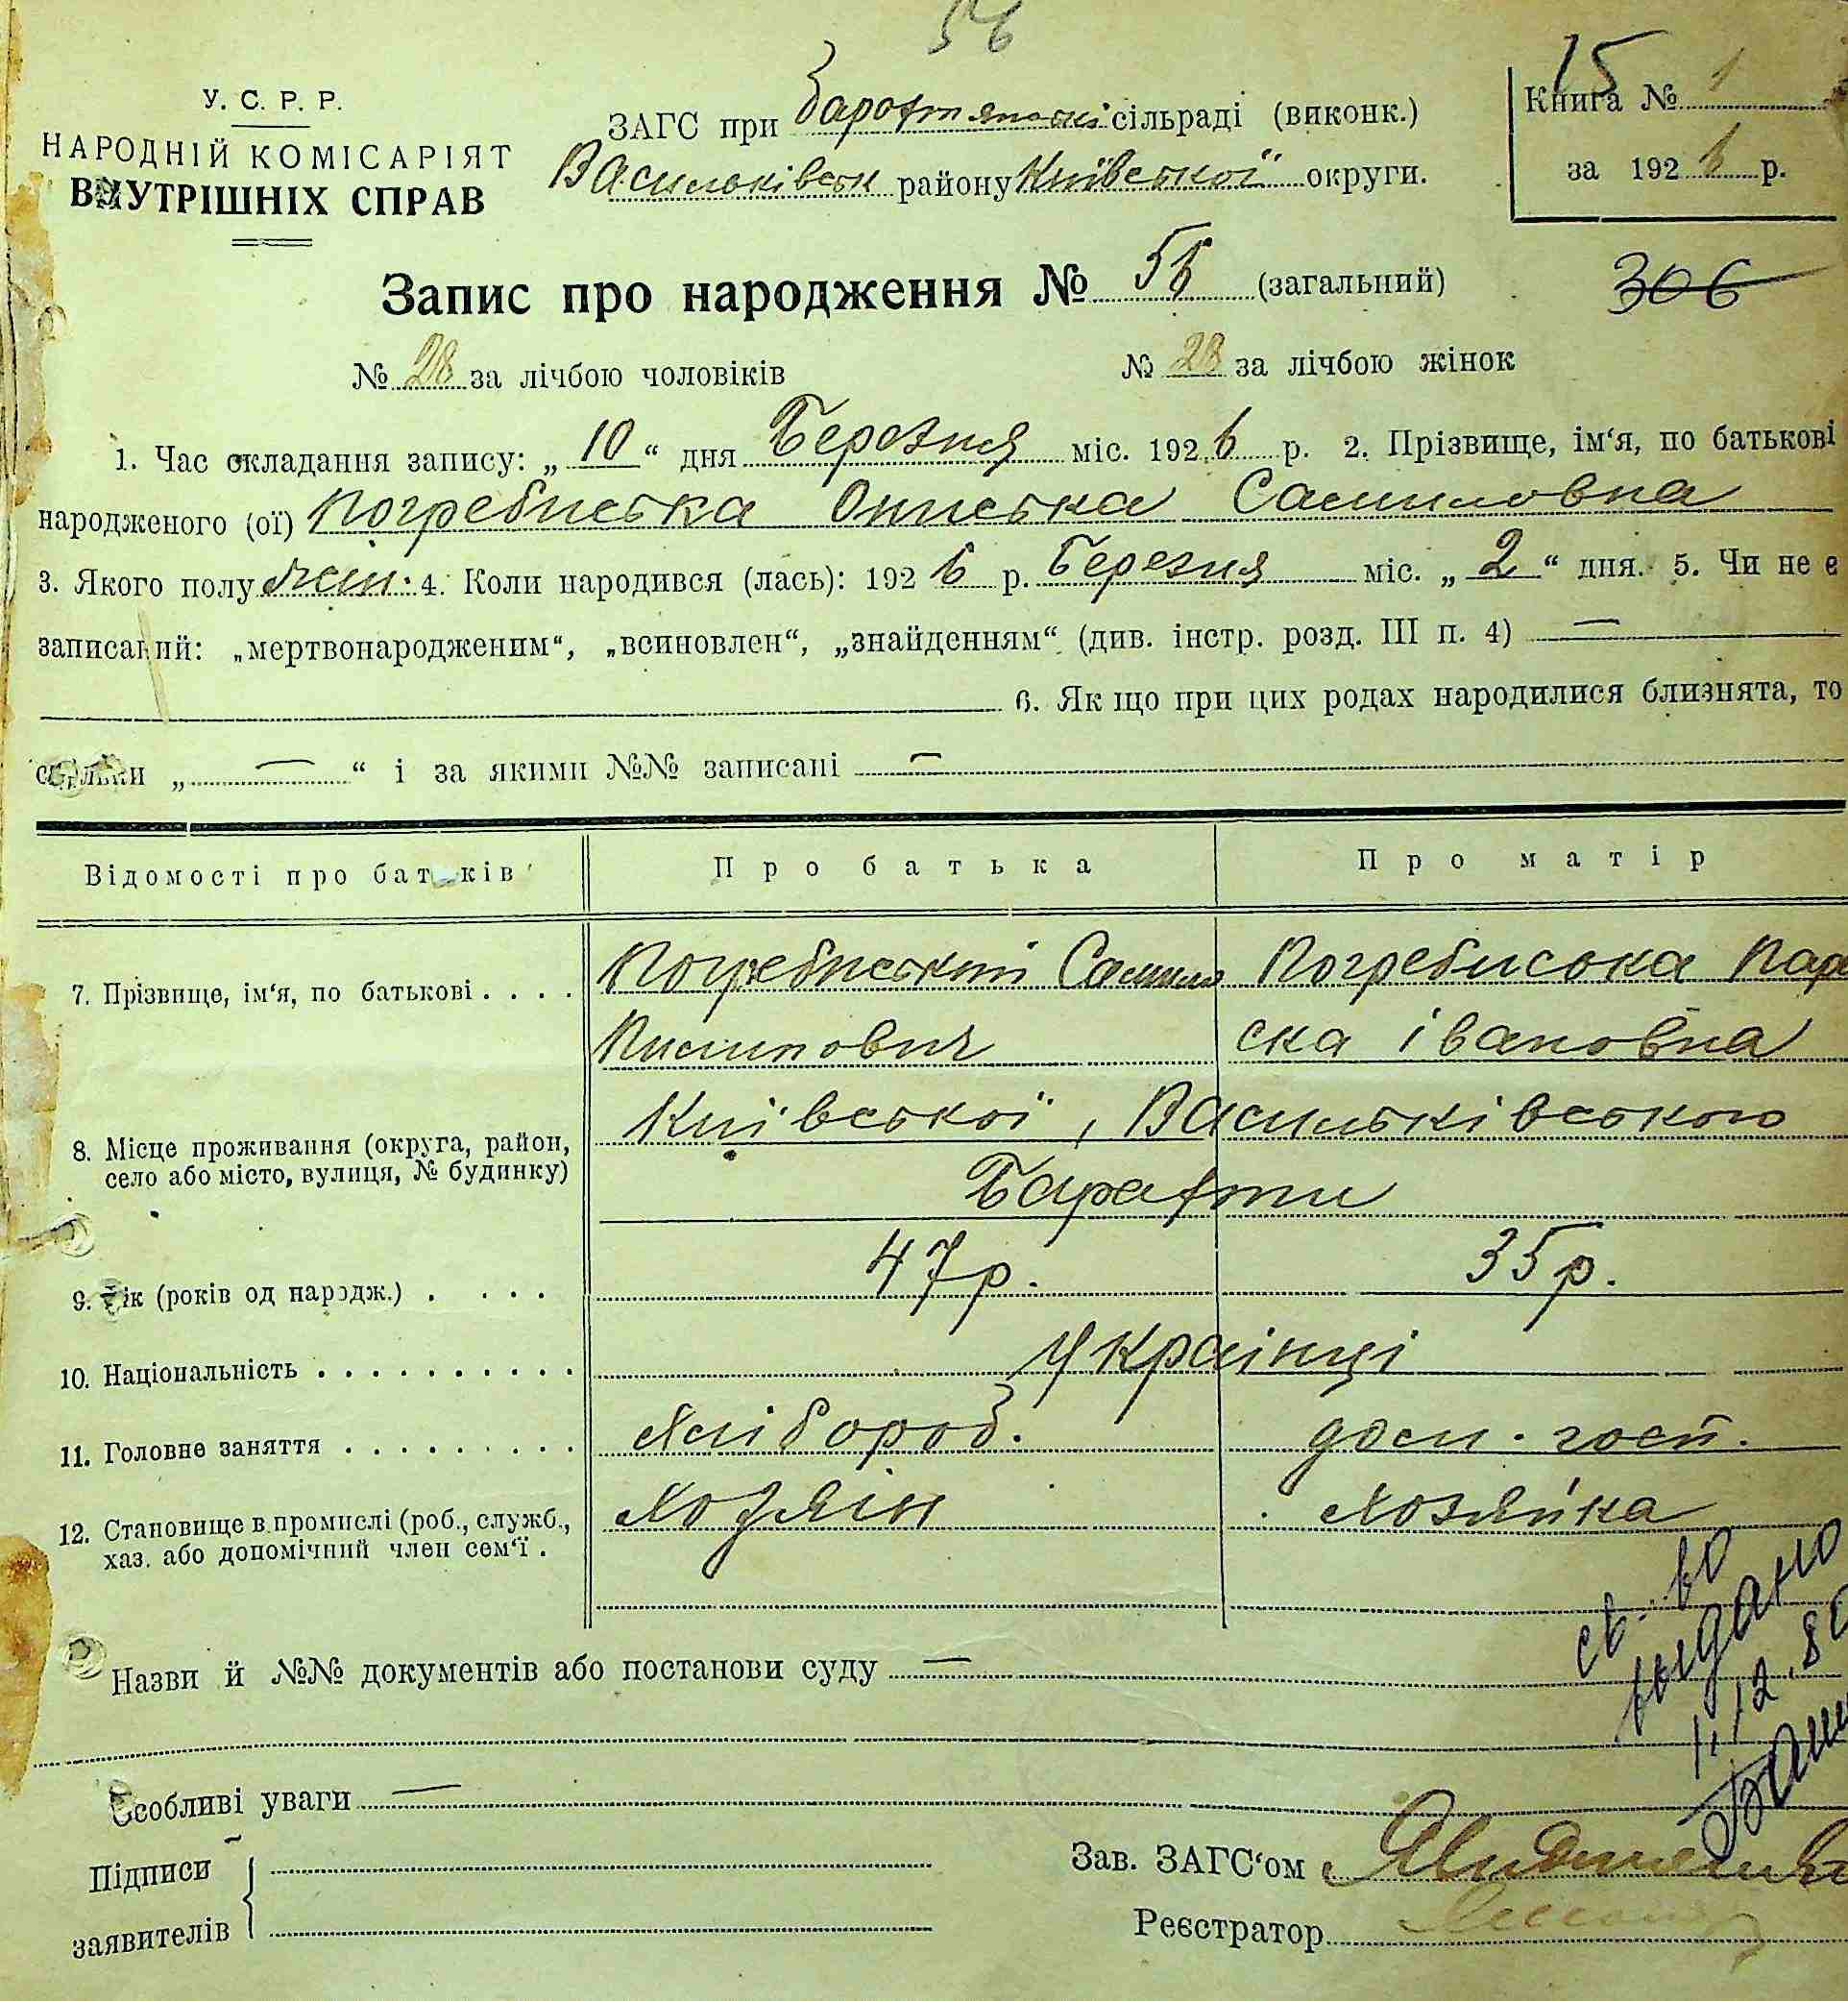 56
У. С. Р. Р.
НАРОДНІЙ КОМІСАРІЯТ
ВНУТРІШНІХ СПРАВ
ЗАГС при сільраді (виконк.)
Васильківськ району Київської округи.
15
Книга № 1
за 1926 р.
Запис про народження № 56 (загальний)
306
№ 28 за лічбою чоловіків № 28 за лічбою жінок
1. Час складання запису: „10“ дня Березня міс. 1926 р. 2. Прізвище, ім‘я, по батькові
народженого (ої) Погребиська Ониська Самиловна
3. Якого полу жін. 4. Коли народився (лась): 1926 р. Березня міс. „2“ дня. 5. Чи не є
записаний: „мертвонародженим“, „всиновлен“, „знайденням“ (див. інстр. розд. III п. 4) —
6. Як що при цих родах народилися близнята, то
скільки „—“ і за якими №№ записані —
Відомості про батьків Про батька Про матір
7. Прізвище, ім‘я, по батькові . . . . Погребиський Самило Погребиська Пара
ска івановна
8. Місце проживання (округа, район, Київської, Васильківського
село або місто, вулиця, № будинку) Барахти
9. Вік (років од народж.) . . . . 47 р. 35 р.
10. Національність . . . . . . . . . . Українці
11. Головне заняття . . . . . . . . . Хлібороб. дом. госп.
12. Становище в промислі (роб., служб., Хозяін Хозяйка
хаз. або допомічний член сем‘ї .
св-во
выдано
1.12.80
Назви й №№ документів або постанови суду —
Особливі уваги —
Підписи
заявителів
Зав. ЗАГС‘ом
Реєстратор